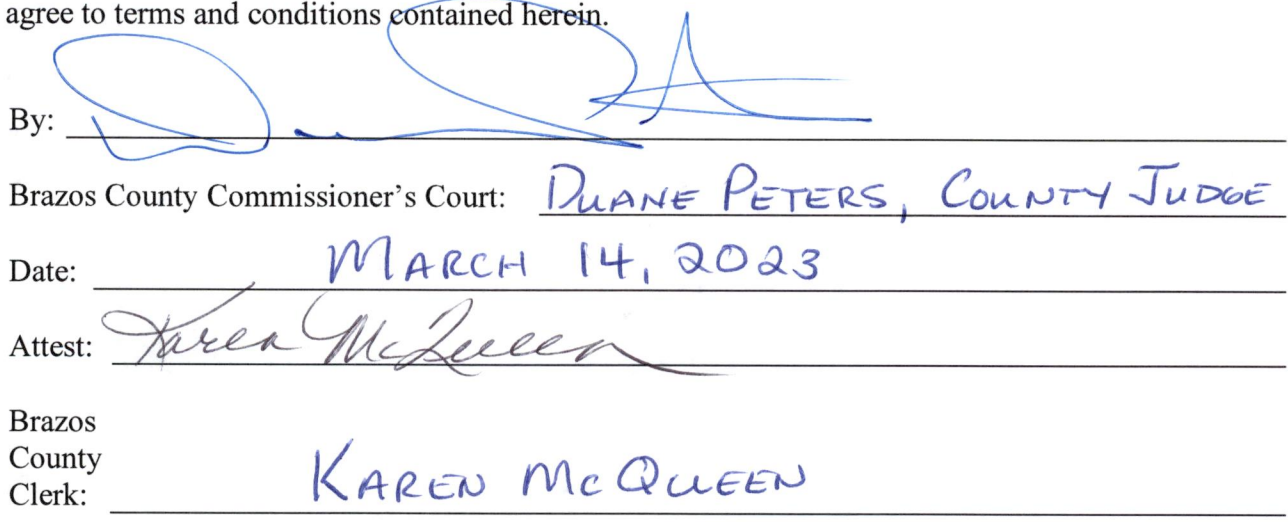 agree to terms and conditions contained herein.
By:
Brazos County Commissioner's Court: DUANE PETERS, COUNTY JUDGE
Date: MARCH 14, 2023
Attest: Karen McQueen
Brazos
County
Clerk: KAREN MCQUEEN